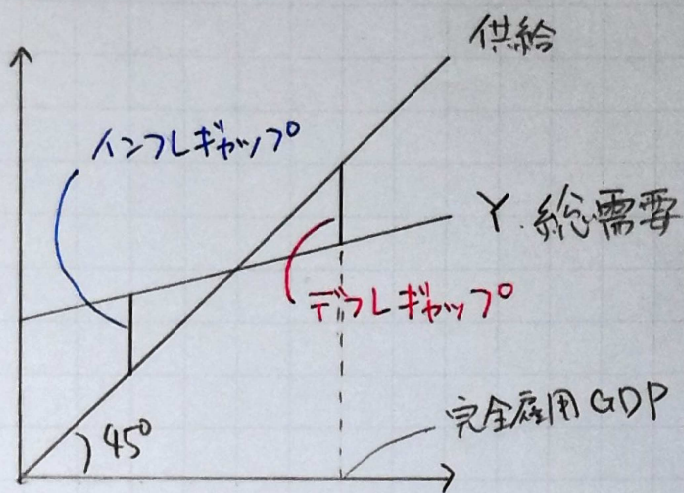 供給
インフレギャップ
Y 総需要
デフレギャップ
完全雇用GDP
45°